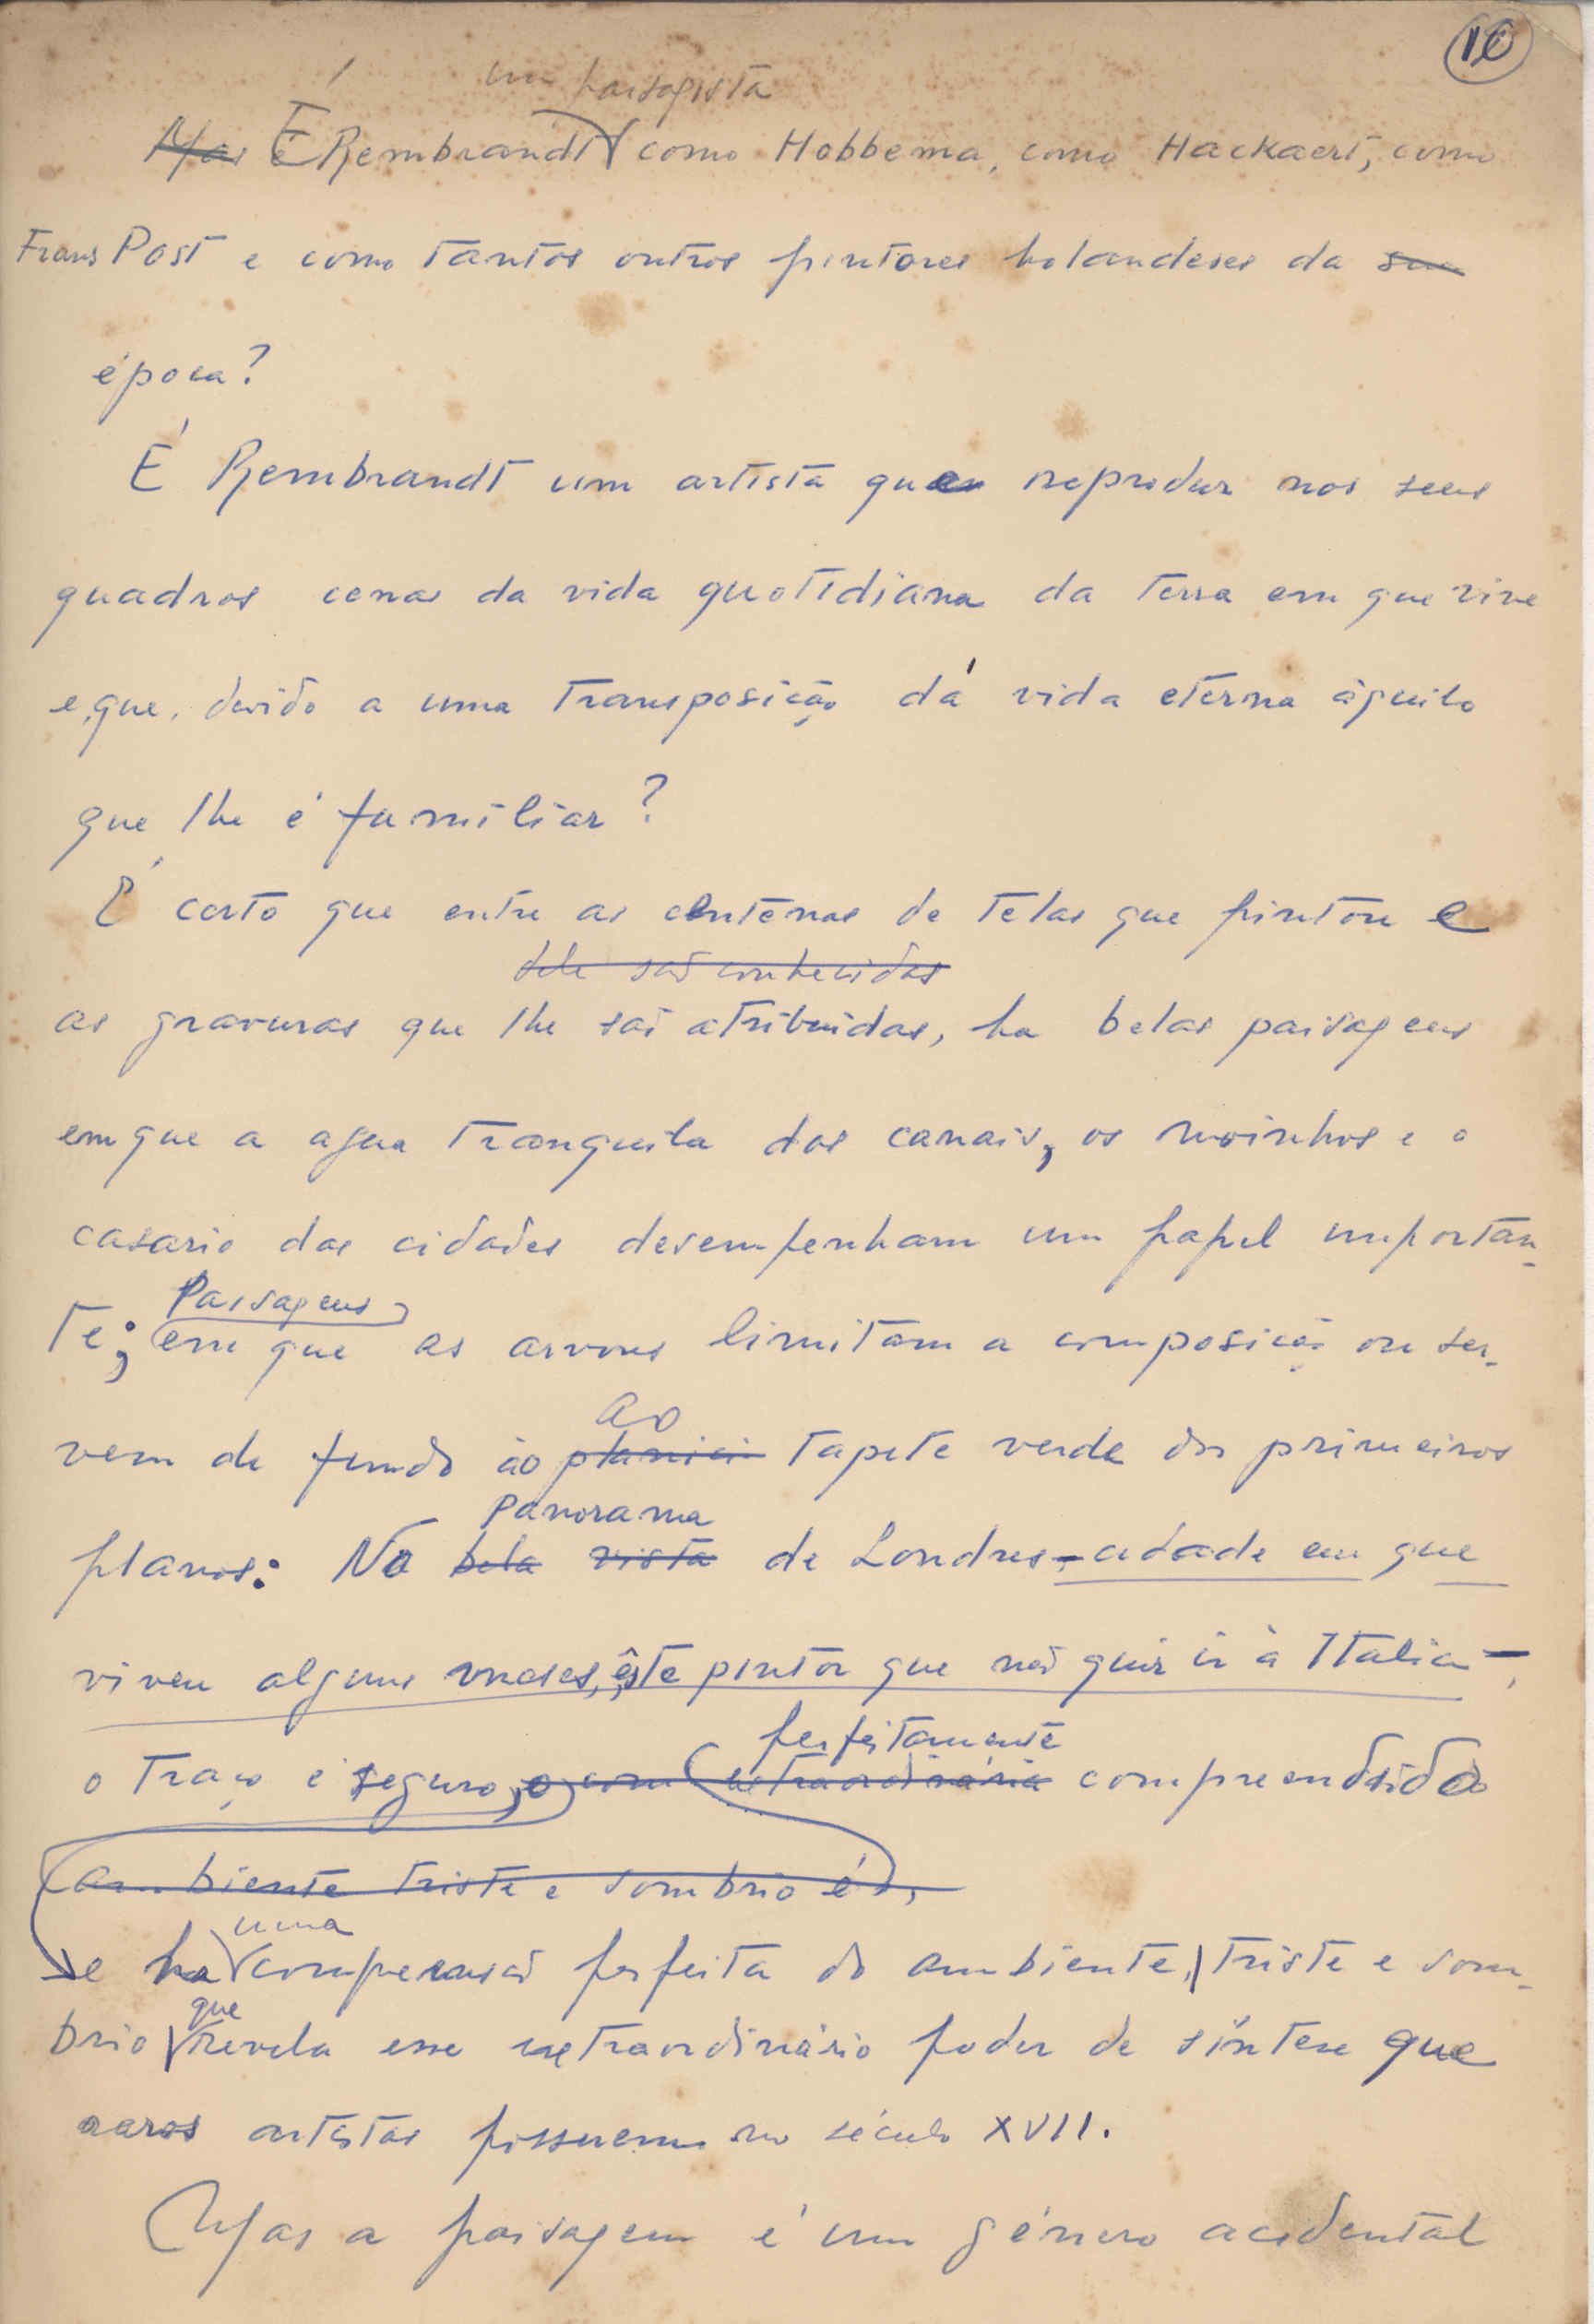 10
um paisagista
Mas É Rembrandt como Hobbema, como Hackaert, como
Frans Post e como tantos outros pintores holandeses da sua
época?
É Rembrandt um artista que reproduz nos seus
quadros cenas da vida quotidiana da terra em que vive
e que, devido a uma transposição dá vida eterna àquilo
que lhe é familiar?
É certo que entre as centenas de telas que pintou e
dele são conhecidas
as gravuras que lhe são atribuidas, ha belas paisagens
em que a agua tranquila dos canais, os moinhos e o
casario das cidades desempenham um papel importan-
Paisagens
te; em que as arvores limitam a composição ou ser-
ao
vem de fundo ao planicie tapete verde dos primeiros
Panorama
planos: No bela vista de Londres - cidade em que
viveu alguns meses, êste pintor que não quis ir à Italia -,
perfeitamente
o traço é seguro, o com extraordinária compreendido
ambiente triste e sombrio é,
uma
e ha compreensão perfeita do ambiente, triste e som-
que
brio revela esse extraordinário poder de síntese que
raros artistas possuem no século XVII.
Mas a paisagem é um género acidental